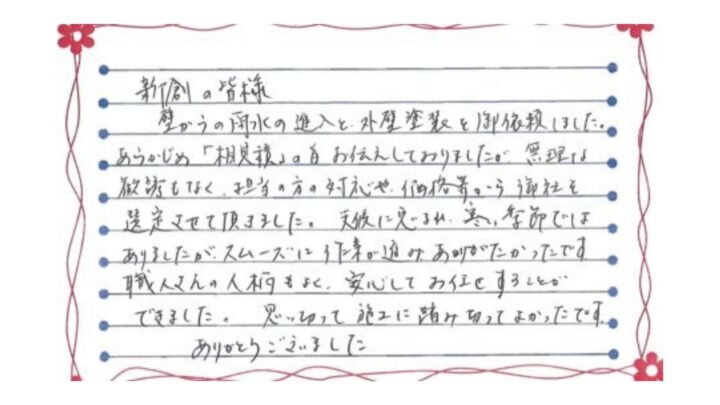 新創の皆様
壁からの雨水の進入と、外壁塗装を御依頼しました。
あらかじめ「相見積」の旨お伝えしておりましたが、無理な
勧誘もなく、担当の方の対応や、価格等から御社を
選定させて頂きました。天候に恵まれ、寒い季節では
ありましたが、スムーズに作業が進みありがたかったです
職人さんの人柄もよく、安心してお任せすることが
できました。思い切って施工に踏み切ってよかったです。
ありがとうございました